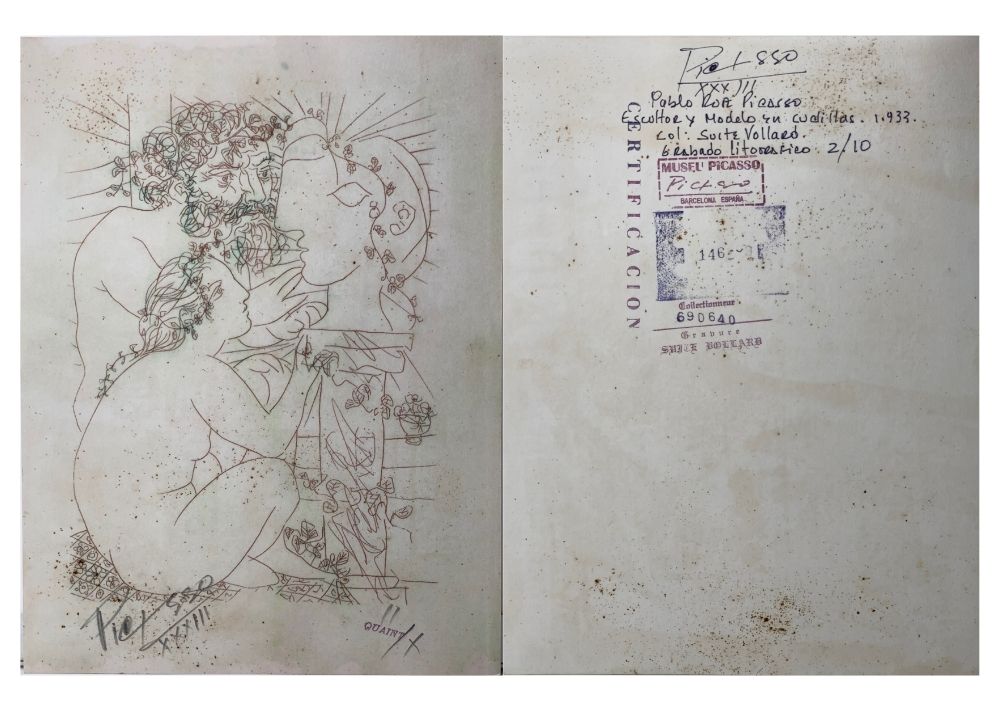 Picasso
XXXIII
II/X
QUAINT
Picasso
XXXIII
Pablo Ruiz Picasso
Escultor y Modelo en Cuclillas. 1.933.
Col. Suite Vollard.
Grabado Litografico 2/10
CERTIFICACIÓN
MUSEU PiCASSO
Picasso
BARCELONA ESPAÑA
146
Collectionneur
690640
Gravure
SUITE BOLLARD